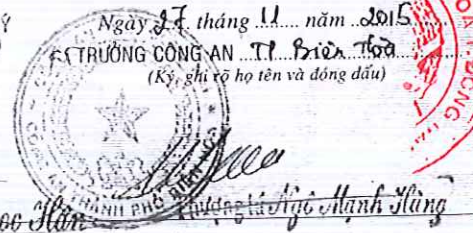 Ngày 27 tháng 11 năm 2015
TRƯỞNG CÔNG AN TP Biên Hoà
(Ký, ghi rõ họ tên và đóng dấu)
THÀNH PHỐ BIÊN HOÀ
Thượng tá Ngô Mạnh Hùng